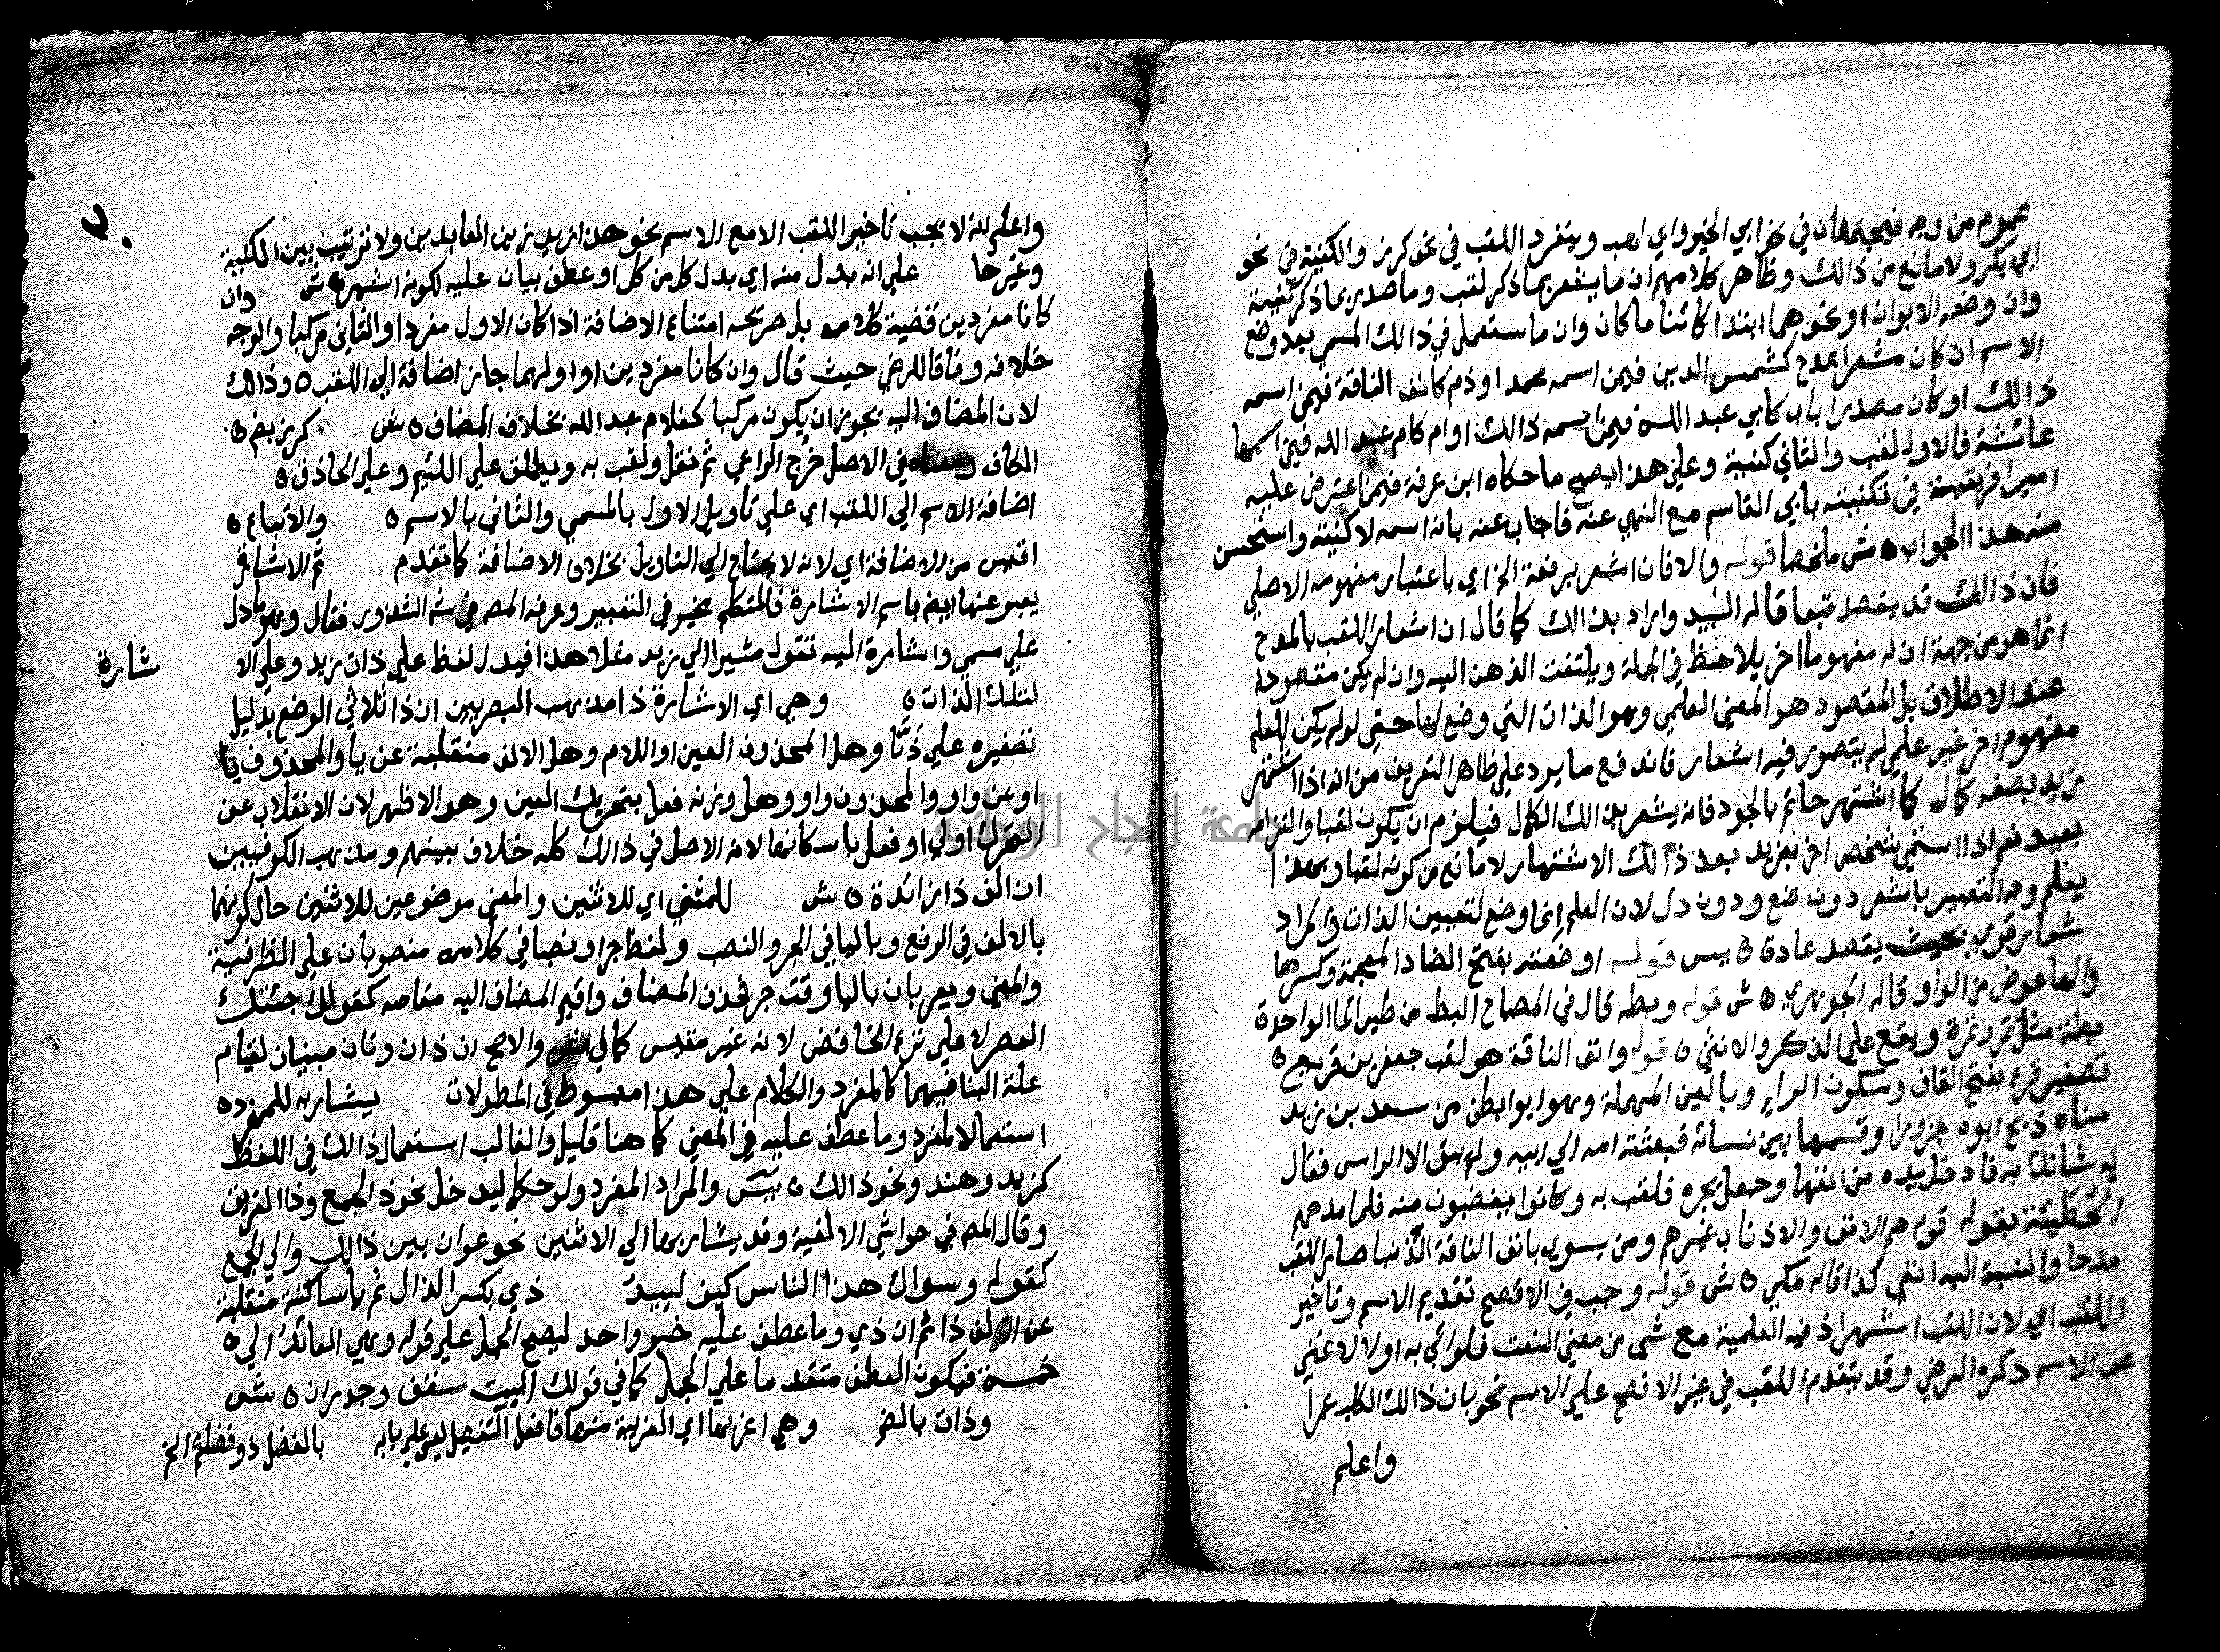 عموم من وجه فيجتمعان في نحو ابي الخير وابي لهب وينفرد اللقب في نحو كرز والكنية في نحو
ابي بكر ولا مانع من ذالك وظاهر كلامهم ان ما ينفعر بما ذكر لقب وما صدر بما ذكر كنية
وان وضعه الابوان او نحوهما ابتدا كائنا ما كان وان ما استعمل في ذالك المسمى بعد وضع
الاسم ان كان مشعرا بمدح كشمس الدين فيمن اسمه محمد او ذم كانف الناقة فيمن اسمه
ذالك او كان مصدرا باب كابي عبد الله فيمن اسمه ذالك او ام كام عبد الله فيمن اسمها
عائشة فالاول لقب والثاني كنية وعلى هذا يصح ما حكاه ابن عرفة فيمن اعترض عليه
امير افريقية في تكنيته بابي القاسم مع النهي عنه فاجاب عنه بانه اسمه لا كنيته واستحسن
منه هذا الجواب ه ش ملخصا قوله والا فان اشعر برفعة الخ اي باعتبار مفهومه الاصلي
فان ذالك قد يقصد تبعا قاله السيد واراد بذالك كما قال ان اشعار اللقب بالمدح
انما هو من جهة ان له مفهوما اخر يلاحظ في الجملة ويلتفت الذهن اليه وان لم يكن مقصودا
عند الاطلاق بل المقصود هو المعنى العلمي وهو الذات التي وضع لها حتى لو لم يكن للعلم
مفهوم اخر غير علمي لم يتصور فيه اشعار فاندفع ما يرد على ظاهر التعريف من انه اذا اشتهر
زيد بصفة كمال كما اشتهر حاتم بالجود فانه يشعر بذالك الكمال فيلزم ان يكون لقبا والتزامه
بعيد نعم اذا سمي شخص اخر بزيد بعد ذالك الاشتهار لا مانع من كونه لقبا وبهذا
يعلم وجه التعبير باشعر دون وضع ودون دل لان العلم انما وضع لتعيين الذات والمراد
شعار قوي بحيث يقصد عادة ه يس قوله او ضعته بفتح الضاد المعجمة وكسرها
والها عوض من الواو قاله الجوهري ه ش قوله وبطة قال في المصباح البط من طير الما الواحدة
بطة مثل تمر وتمرة ويقع على الذكر والانثى ه قوله وانف الناقة هو لقب جعفر بن قريع ه
تصغير قرع بفتح القاف وسكون الراء وبالعين المهملة وهو ابو بطن من سعد بن زيد
مناة ذبح ابوه جزورا وقسمها بين نسائه فبعثته امه الى ابيه ولم يبق الا الراس فقال
له شانك به فادخل يده من انفها وجعل يجره فلقب به وكانوا يغضبون منه فلما مدحهم
الحطيئة بقوله قوم هم الانف والاذناب غيرهم ومن يسوي بانف الناقة الذنبا صار اللقب
مدحا والنسبة اليه انفي كذا قاله مكي ه ش قوله وجب في الافصح تقديم الاسم وتاخير
اللقب اي لان اللقب اشهر اذ فيه العلمية مع شي من معنى النعت فلو اتي به اولا لاغنى
عن الاسم ذكره الرضي وقد يتقدم اللقب في غير الافصح على الاسم نحو بان ذالك الكلب عمرا
واعلم
واعلم انه لا يجب تاخير اللقب الا مع الاسم نحو هذا زيد زين العابدين ولا ترتيب بين الكنية
وغيرها على انه بدل منه اي بدل كل من كل او عطف بيان عليه لكونه اشهر ه ش وان
كانا مفردين قضية كلامه بل صريحه امتناع الاضافة اذا كان الاول مفردا والثاني مركبا والوجه
خلافه وفاقا للرضي حيث قال وان كانا مفردين او اولهما جاز اضافة الى اللقب ه وذالك
لان المضاف اليه يجوز ان يكون مركبا كغلام عبد الله بخلاف المضاف ه ش كرز بضم ه
الكاف ومعناه في الاصل خرج الراعي ثم نقل ولقب به ويطلق على اللئيم وعلى الحاذق ه
اضافة الاسم الى اللقب اي على تاويل الاول بالمسمى والثاني بالاسم ه والاتباع ه
اقيس من الاضافة اي لانه لا يحتاج الى التاويل بخلاف الاضافة كما تقدم ثم الاشارة
يعبر عنها ايضا باسم الاشارة فالمتكلم مخير في التعبير وعرفه المص في شه الشذور فقال وهو ما دل
على مسمى واشارة اليه تقول مشيرا الى زيد مثلا هذا فيدل لفظ على ذات زيد وعلى الا شارة
لتلك الذات ه وهي اي الاشارة ذا مذهب البصريين ان ذا ثلاثي الوضع بدليل
تصغيره على ذيا وهل المحذوف العين او اللام وهل الالف منقلبة عن يا والمحذوف يا
او عن واو والمحذوف واو وهل وزنه فعل بتحريك العين وهو الاظهر لان الانقلاب عن
المتحرك اولى او فعل باسكانها لانه الاصل في ذالك كله خلاف بينهم ومذهب الكوفيين
ان الف ذا زائدة ه ش للمثنى اي للاثنين والمعنى موضوعين للاثنين حال كونهما
بالالف في الرفع وباليا في الجر والنصب ولفظ جرا ونصبا في كلامه منصوبان على الظرفية
والمعنى ويعربان باليا وقت جر فحذف المضاف واقيم المضاف اليه مقامه كقولك جئتك
العصر لا على نزع الخافض لانه غير مقيس كما في والاصح ان ذان وتان مبنيان لقيام
علة البنا فيهما كالمفرد والكلام على هذا مبسوط في المطولات يشار به للمفرد ه
استعمال المفرد وما عطف عليه في المعنى كما هنا قليل والغالب استعمال ذالك في اللفظ
كزيد وهند ونحو ذالك ه يس والمراد المفرد ولو حكما ليدخل نحو ذا الجمع وذا الفريق
وقال المص في حواشي الالفية وقد يشار بها الى الاثنين نحو عوان بين ذالك والى الجمع
كقوله وسوال هذا الناس كيف لبيد ذي بكسر الذال ثم يا ساكنة منقلبة
عن الف ذا ثم ان ذي وما عطف عليه خبر واحد ليصح الحمل على قوله وهي العائد الى ه
خمسة فيكون العطف متقدما على الحمل كما في قولك البيت سقف وجدران ه ش
وذات بالضم وهي اغربها اي الغريبة منها فافعل التفضيل ليس على بابه بالفضل ذو فضلكم الخ